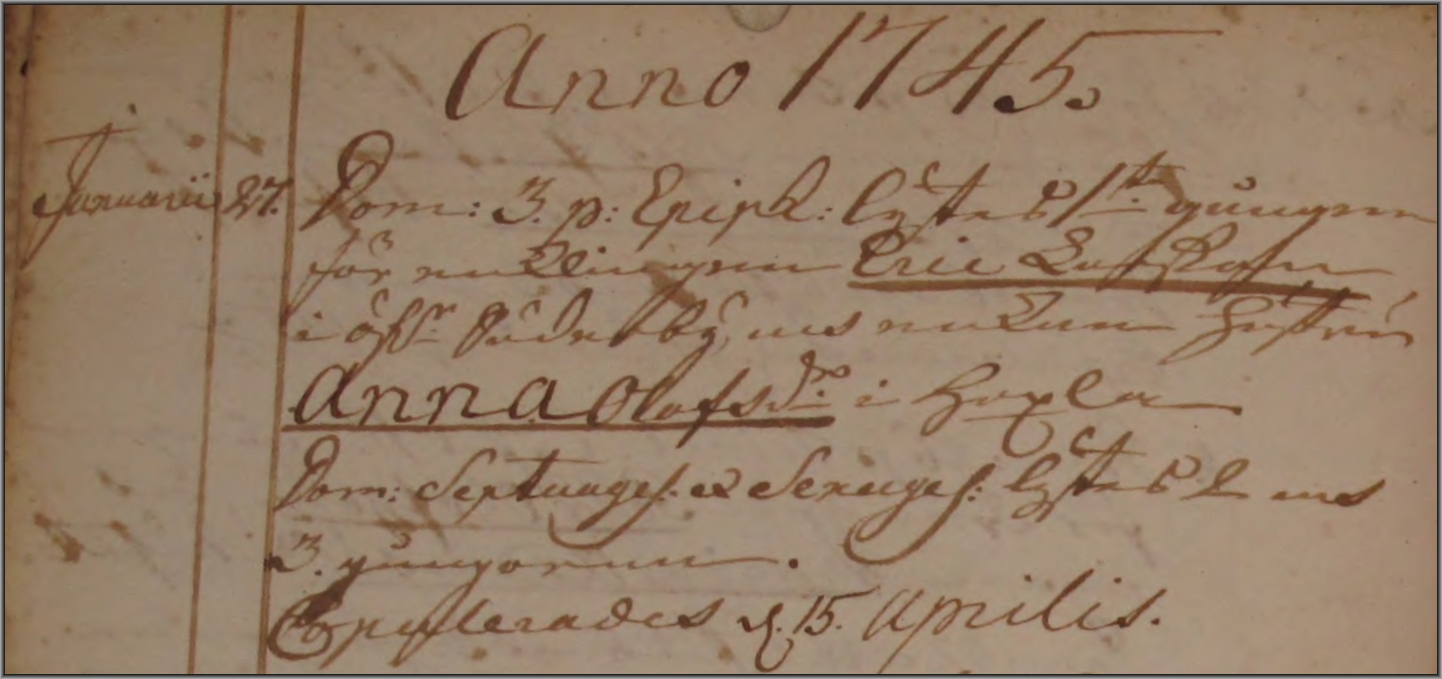 Anno 1745.
Januarii 27. Dom: 3. p: Epiph: lystes 1ta gången
för enklingen Eric
i öfr Söderby, och enkan Hustru
Anna Olofsdr i Haxla
Dom: Septuages: et Sexages: lystes 2 och
3. gångorna.
Copulerades d. 15. Aprilis.